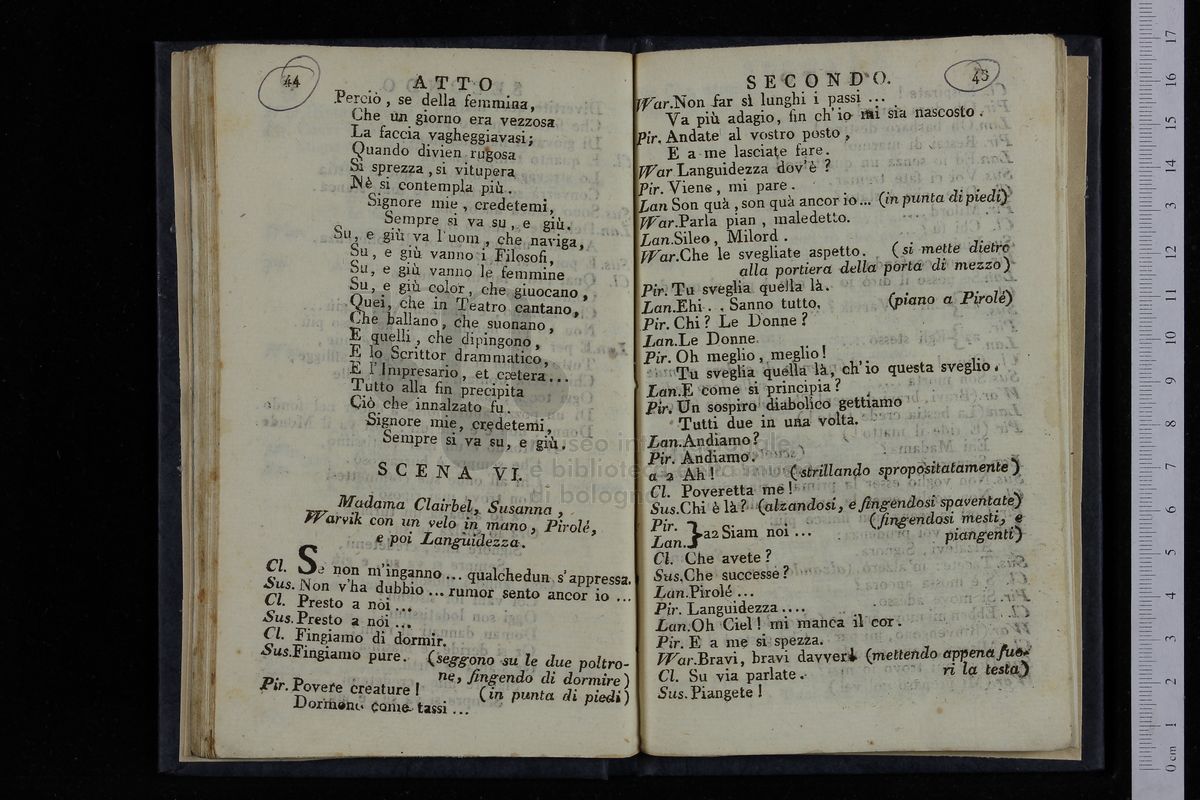 44
ATTO
Perciò, se della femmina,
Che un giorno era vezzosa
La faccia vagheggiavasi;
Quando divien rugosa
Si sprezza, si vitupera
Nè si contempla più.
Signore mie, credetemi,
Sempre si va su, e giù.
Su, e giù va l'uom, che naviga,
Su, e giù vanno i Filosofi,
Su, e giù vanno le femmine
Su, e giù color, che giuocano,
Quei, che in Teatro cantano,
Che ballano, che suonano,
E quelli, che dipingono,
E lo Scrittor drammatico,
E l'Impresario, et cætera...
Tutto alla fin precipita
Ciò che innalzato fu.
Signore mie, credetemi,
Sempre si va su, e giù.
SCENA VI.
Madama Clairbel, Susanna,
Warvik con un velo in mano, Pirolé,
e poi Languidezza.
Cl. Se non m'inganno... qualchedun s'appressa.
Sus. Non v'ha dubbio... rumor sento ancor io...
Cl. Presto a noi...
Sus. Presto a noi...
Cl. Fingiamo di dormir.
Sus. Fingiamo pure. (seggono su le due poltro-
ne, fingendo di dormire)
Pir. Povere creature! (in punta di piedi)
Dormono come tassi...
SECONDO.
45
War. Non far sì lunghi i passi...
Va più adagio, fin ch'io mi sia nascosto.
Pir. Andate al vostro posto,
E a me lasciate fare.
War Languidezza dov'è?
Pir. Viene, mi pare.
Lan Son quà, son quà ancor io... (in punta di piedi)
War. Parla pian, maledetto.
Lan. Sileo, Milord.
War. Che le svegliate aspetto. (si mette dietro
alla portiera della porta di mezzo)
Pir. Tu sveglia quella là.
Lan. Ehi... Sanno tutto. (piano a Pirolé)
Pir. Chi? Le Donne?
Lan. Le Donne.
Pir. Oh meglio, meglio!
Tu sveglia quella là, ch'io questa sveglio.
Lan. E come si principia?
Pir. Un sospiro diabolico gettiamo
Tutti due in una volta.
Lan. Andiamo?
Pir. Andiamo.
a 2 Ah! (strillando spropositatamente)
Cl. Poveretta me!
Sus. Chi è là? (alzandosi, e fingendosi spaventate)
Pir. (fingendosi mesti, e
} a2 Siam noi...
Lan. piangenti)
Cl. Che avete?
Sus. Che successe?
Lan. Pirolé...
Pir. Languidezza....
Lan. Oh Ciel! mi manca il cor.
Pir. E a me si spezza.
War. Bravi, bravi davveri (mettendo appena fuo-
Cl. Su via parlate. ri la testa)
Sus. Piangete!
museo internazionale
e biblioteca della musica
di bologna
17
16
15
14
13
12
11
10
9
8
7
6
5
4
3
2
1
0 cm